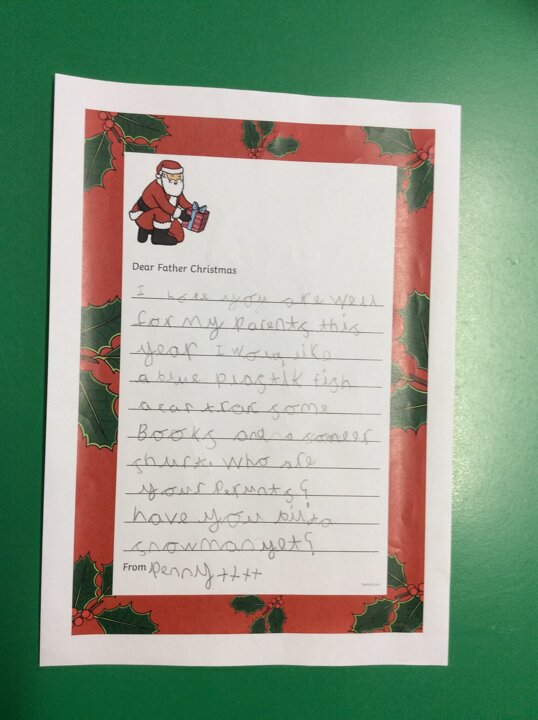 Dear Father Christmas
I hope you are well
for my parents this
year I woud like
a blue plastik fish
a car trak some
Books and a soneer
shurt. Who are
your perunts?
have you bilt a
snowman yet?
From Penny ++++